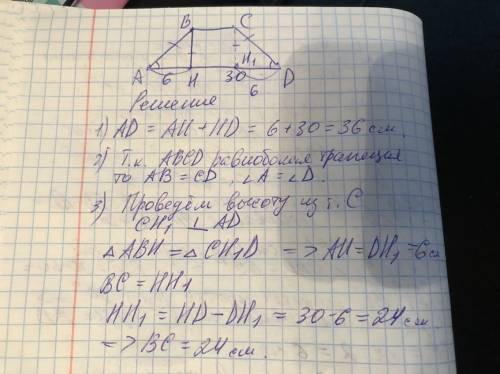 B C
A 6 H 30 H₁ D
6
Решение
1) AD = AH + HD = 6 + 30 = 36 см.
2) Т.к. ABCD равнобокая трапеция
то AB = CD ∠A = ∠D.
3) Проведём высоту из т. C
CH₁ ⊥ AD
△ABH = △CH₁D => AH = DH₁ = 6см
BC = HH₁
HH₁ = HD - DH₁ = 30 - 6 = 24 см
=> BC = 24 см.